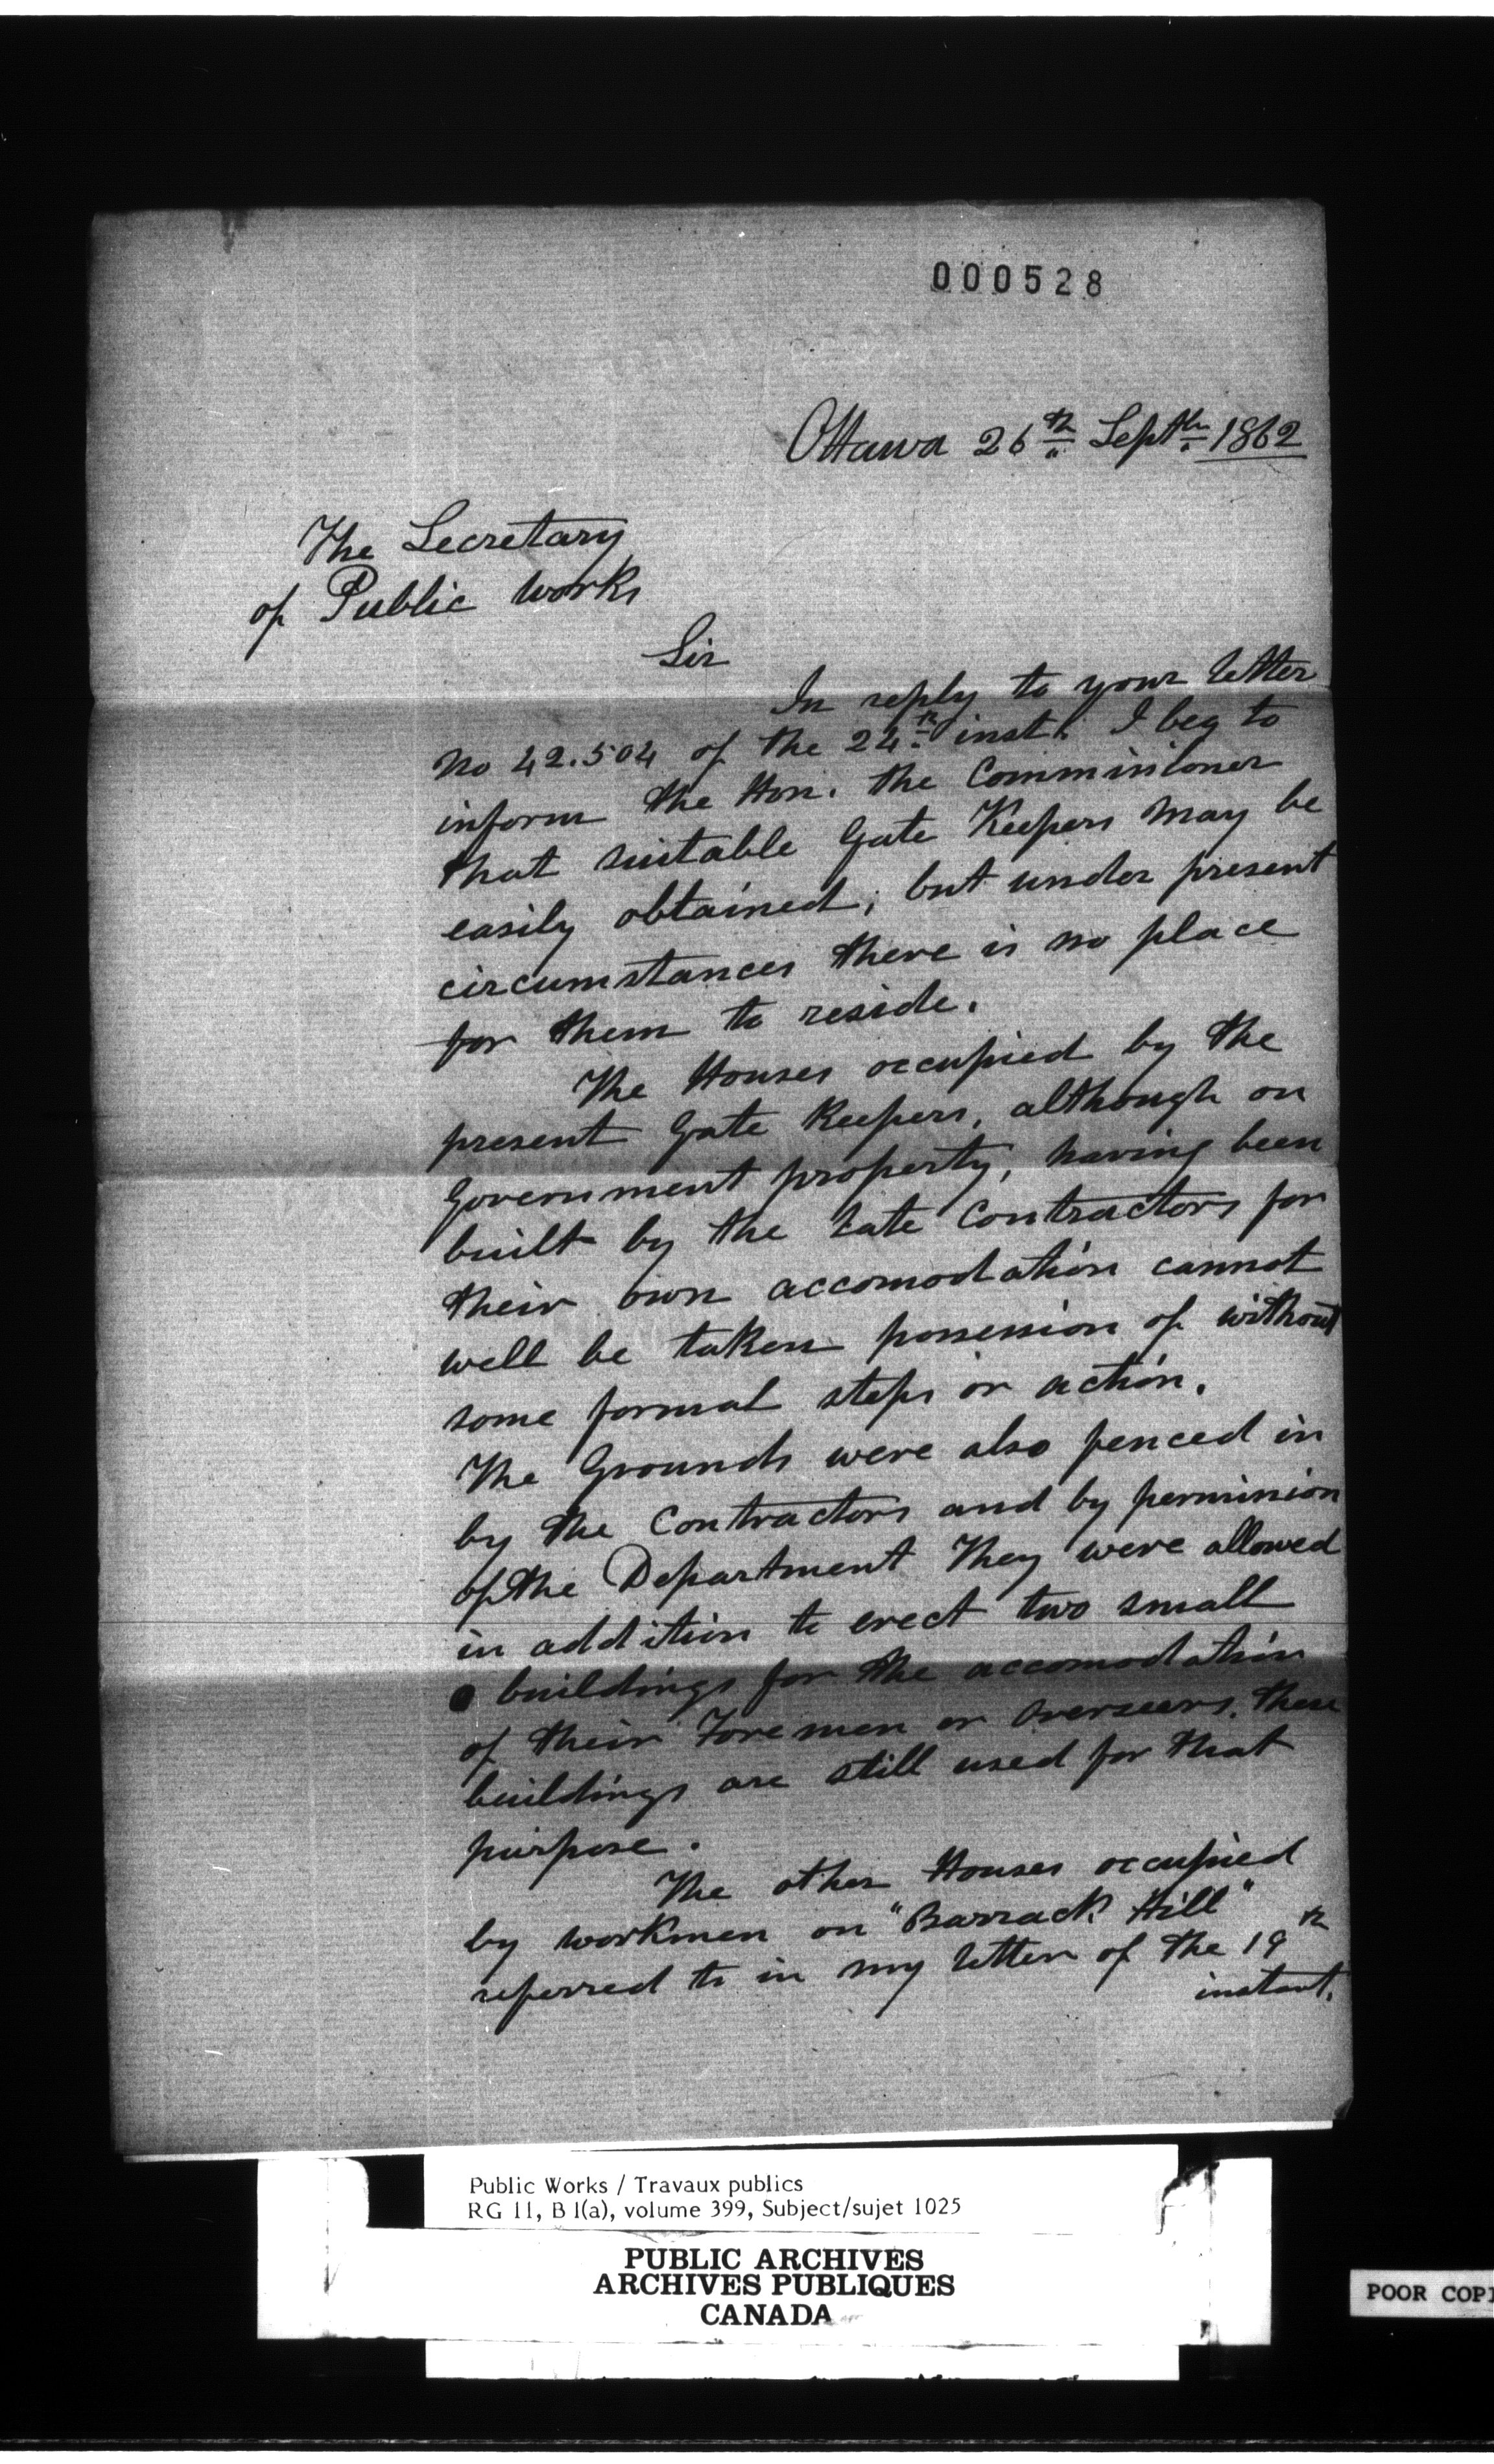 000528
Ottawa 26th Septbr 1862
The Secretary
of Public Works
Sir
In reply to your letter
No 42.504 of the 24th inst. I beg to
inform the Hon. the Commissioner
that suitable Gate Keepers may be
easily obtained; but under present
circumstances there is no place
for them to reside.
The Houses occupied by the
present Gate Keepers, although on
Government property, having been
built by the late Contractors for
their own accomodation cannot
well be taken possession of without
some formal steps or action.
The Grounds were also fenced in
by the Contractors and by permission
of the Department They were allowed
in addition to erect two small
buildings for the accomodation
of their Foremen or Overseers. these
buildings are still used for that
purpose.
The other Houses occupied
by workmen on "Barrack Hill"
referred to in my letter of the 19th
instant.
Public Works / Travaux publics
RG 11, B 1(a), volume 399, Subject/sujet 1025
PUBLIC ARCHIVES
ARCHIVES PUBLIQUES
CANADA
POOR COPI